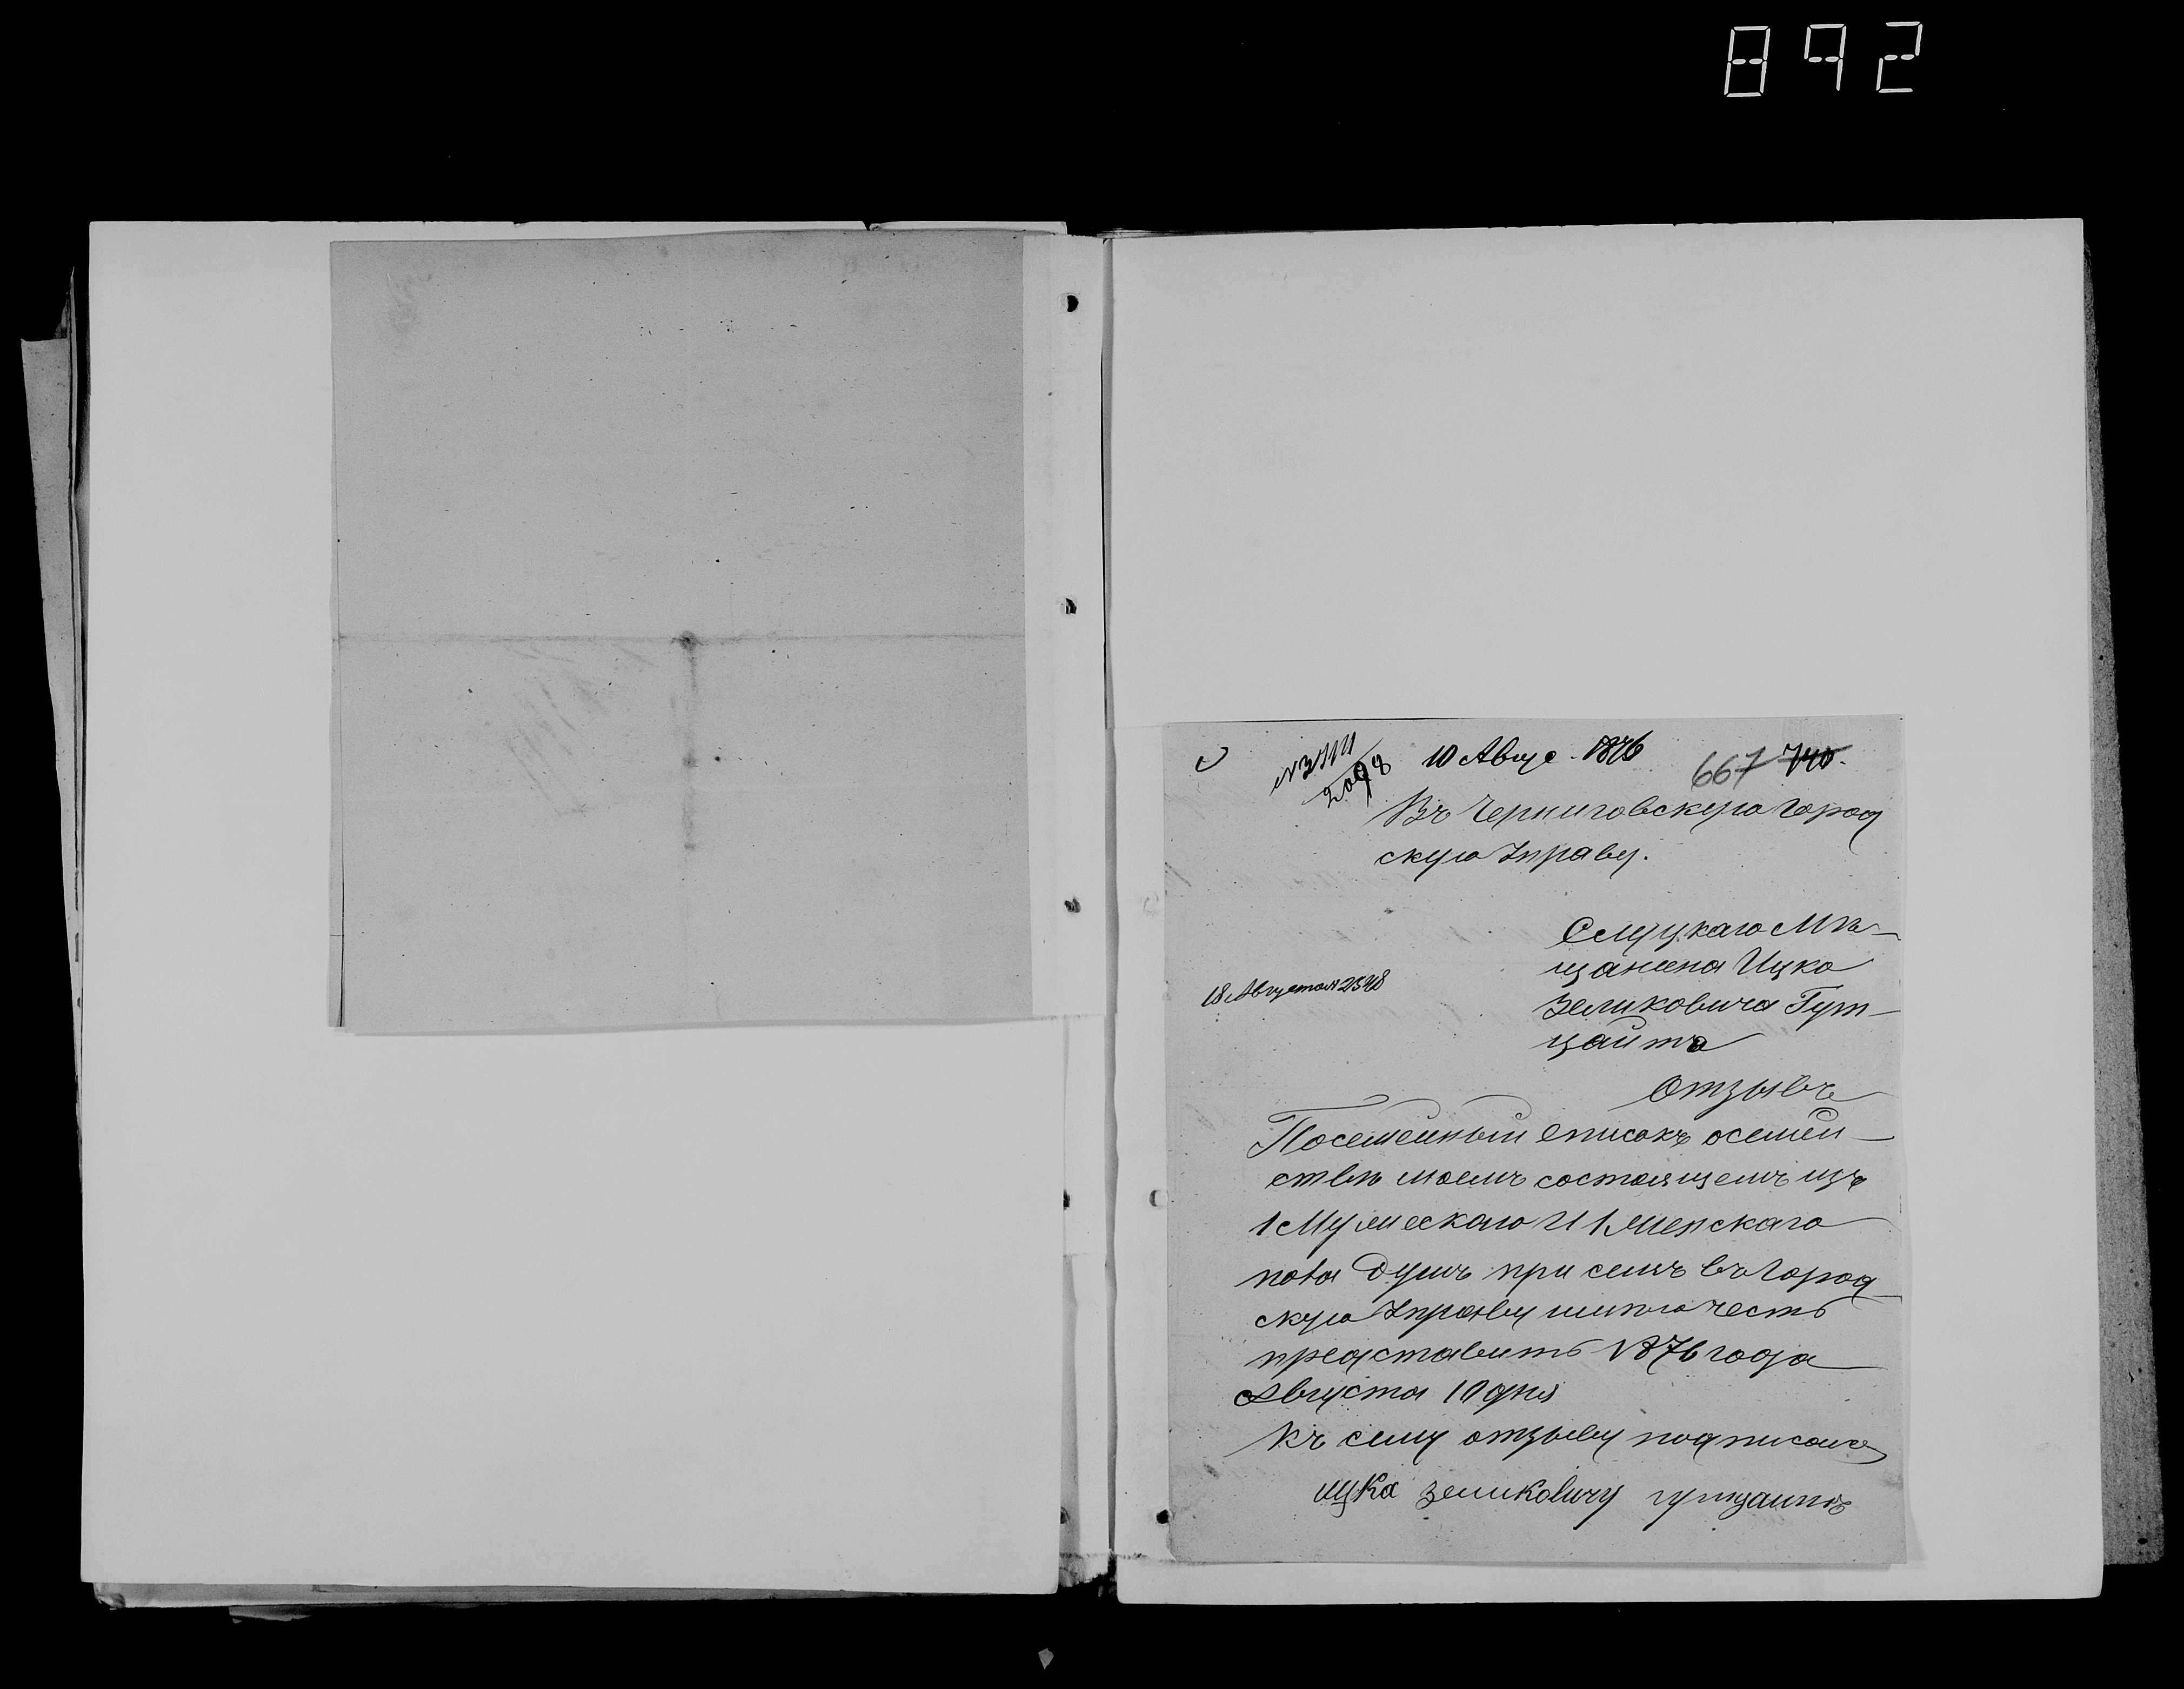 892
№ 3144
2098
10 Авгус. 1876
667 740.
Въ Черниговскую Город
скую Управу.
Слуцкаго Мѣ-
щанина Ицко
Зеликовича Гут-
цайта
18 Августа № 2548
Отзывъ
Посемейный списокъ осемей-
ствѣ моемъ состоящемъ изъ
1 Мужескаго И 1 Женскаго
пола Душъ при семъ въ Город
скую Управу имѣю честь
представить 1876 года
Августа 10 дня
Къ сему отзыву подписался
ицка зеликовичу гутцаитъ